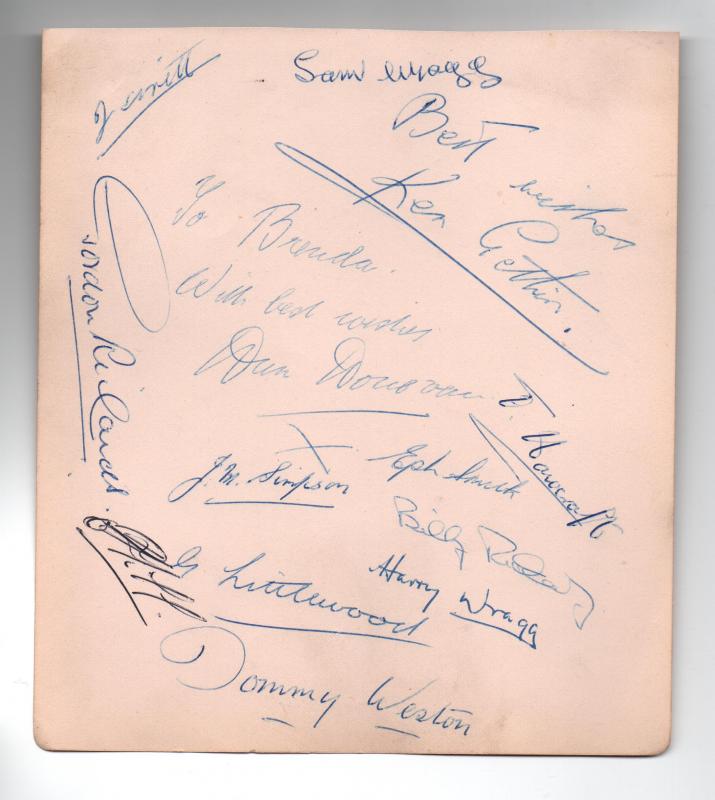 Sam Wragg
Best wishes
Ken Gethin.
To Brenda.
With best wishes
Dan Donovan
Gordon Richards.
Eph Smith
J.M. Simpson
Billy
G Littlewood
Harry Wragg
Tommy Weston